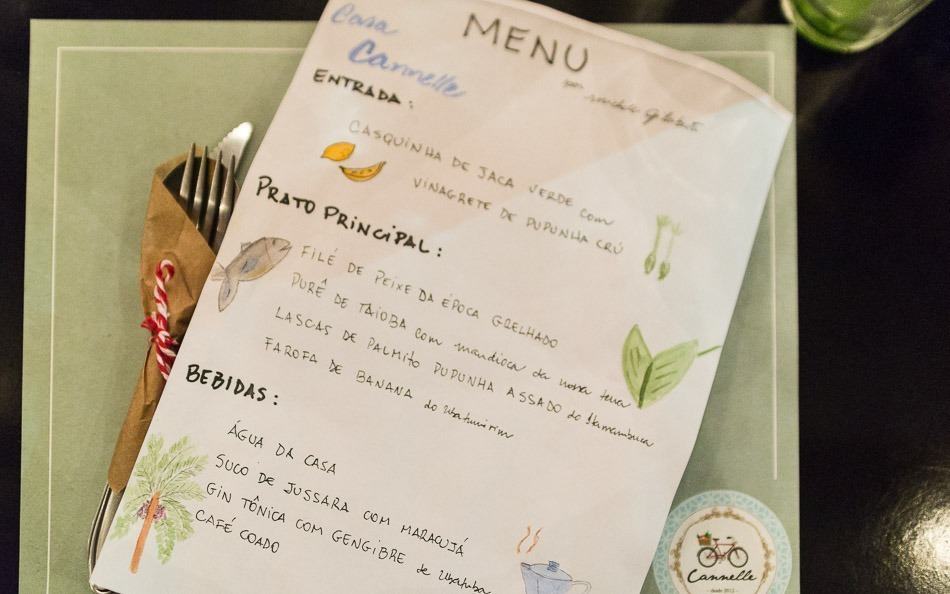 Casa
Cannelle
MENU
por
ENTRADA:
CASQUINHA DE JACA VERDE com
VINAGRETE DE PUPUNHA CRÚ
PRATO PRINCIPAL:
FILÉ DE PEIXE DA ÉPOCA GRELHADO
PURÊ DE TAIOBA com mandioca da nossa terra
LASCAS DE PALMITO PUPUNHA ASSADO do Itamambuca
FAROFA DE BANANA do Ubatumirim
BEBIDAS:
ÁGUA DA CASA
SUCO DE JUSSARA COM MARACUJÁ
GIN TÔNICA COM GENGIBRE de Ubatuba
CAFÉ COADO
Cannelle
desde 2012